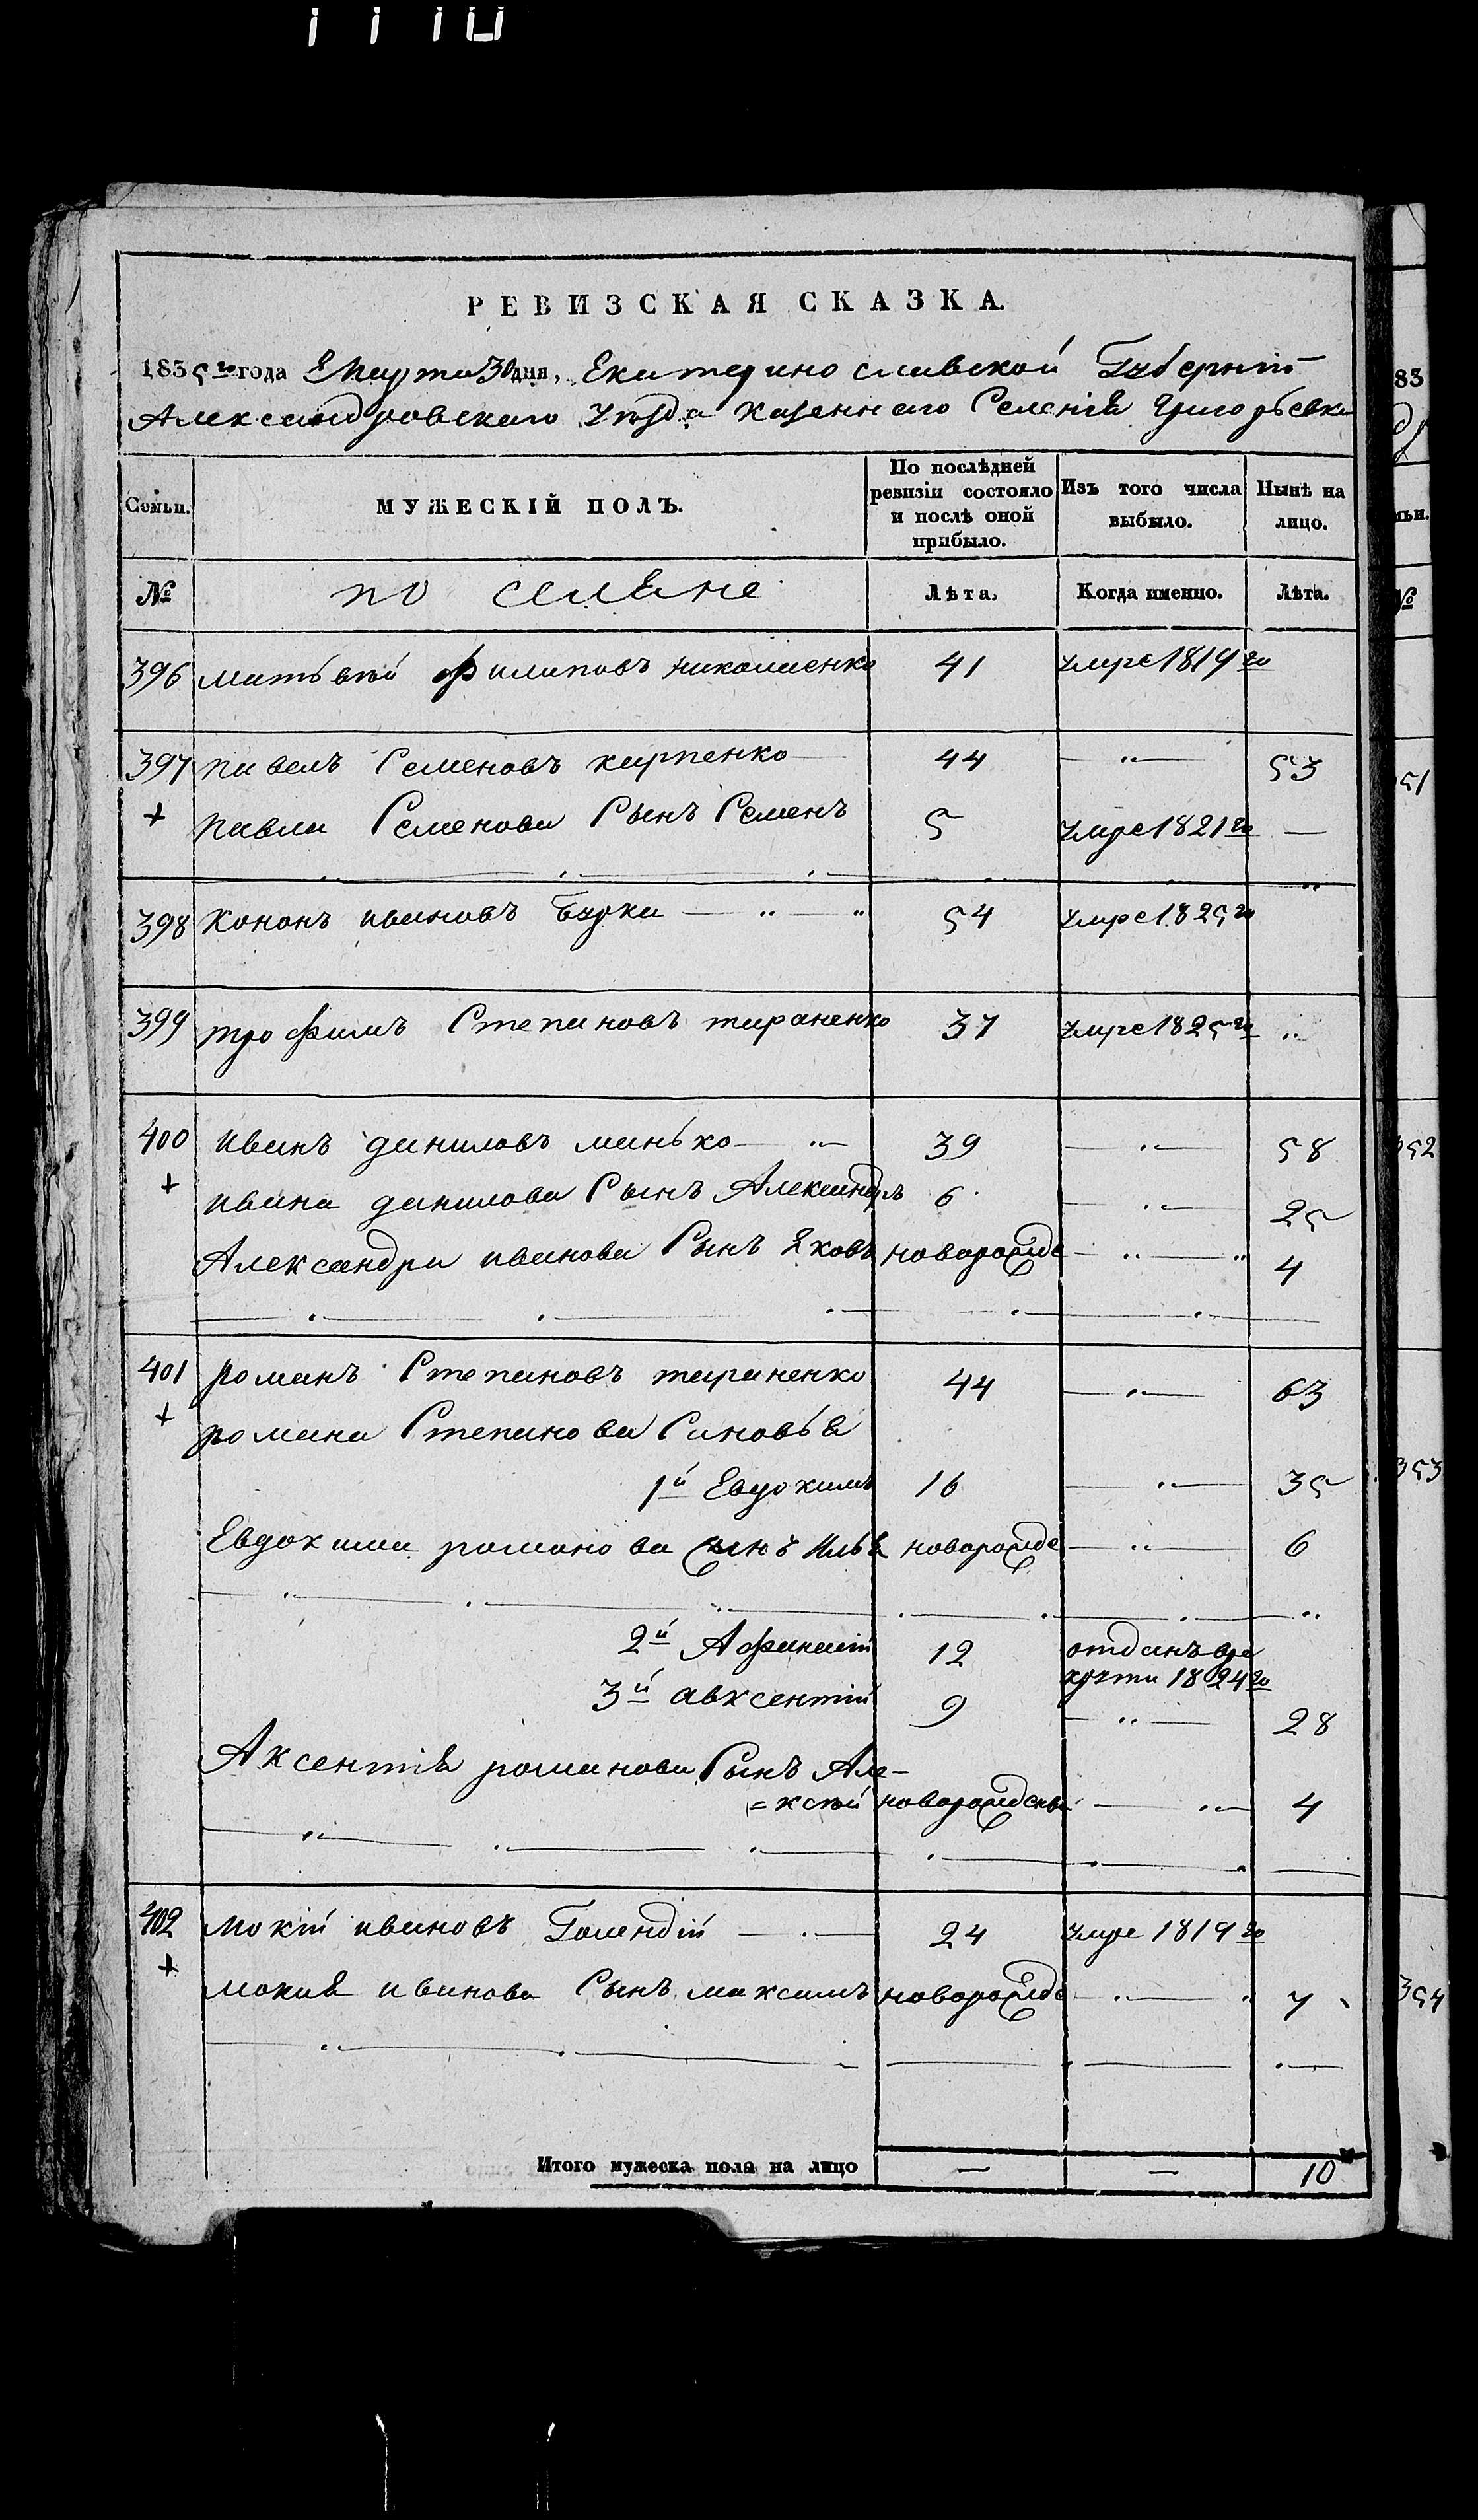 РЕВИЗСКАЯ СКАЗКА.
1835го года Марта 30 дня, Екатеринославской Губернии
Александровскаго уѣзда казеннаго Селенія Григорьевки
Семьи. МУЖЕСКІЙ ПОЛЪ. По послѣдней ревизіи состояло и послѣ оной прибыло. Изъ того числа выбыло. Нынѣ на лицо.
№ поселяне Лѣта. Когда именно. Лѣта.
396 матьвѣй Филиповъ николаенко 41 умре 1819го
397 павелъ Семеновъ карпенко 44 53
+ павла Семенова Сынъ Семенъ 5 умре 1821го —
398 Кононъ ивановъ Бурка 54 умре 1825го
399 трофимъ Степановъ тараненко 37 умре 1825го
400 иванъ даниловъ манько 39 58
+ ивана данилова Сынъ Александръ 6 25
Александра иванова Сынъ Яковъ новорожде 4
401 романъ Степановъ тараненко 44 63
+ романа Степанова Синовья
1й Евдокимъ 16 35
Евдокима романова Сынъ Илья новорожде 6
2й Афанасій 12 отданъ вре
круты 1824го
3й авксентій 9 28
Аксентія романова Сынъ Але-
=ксѣй новорожденъ 4
402 мокій ивановъ 24 умре 1819го
+ мокия иванова Сынъ максимъ новорожде 7
Итого мужеска пола на лицо — — 10
83
мьи.
№
351
352
353
354